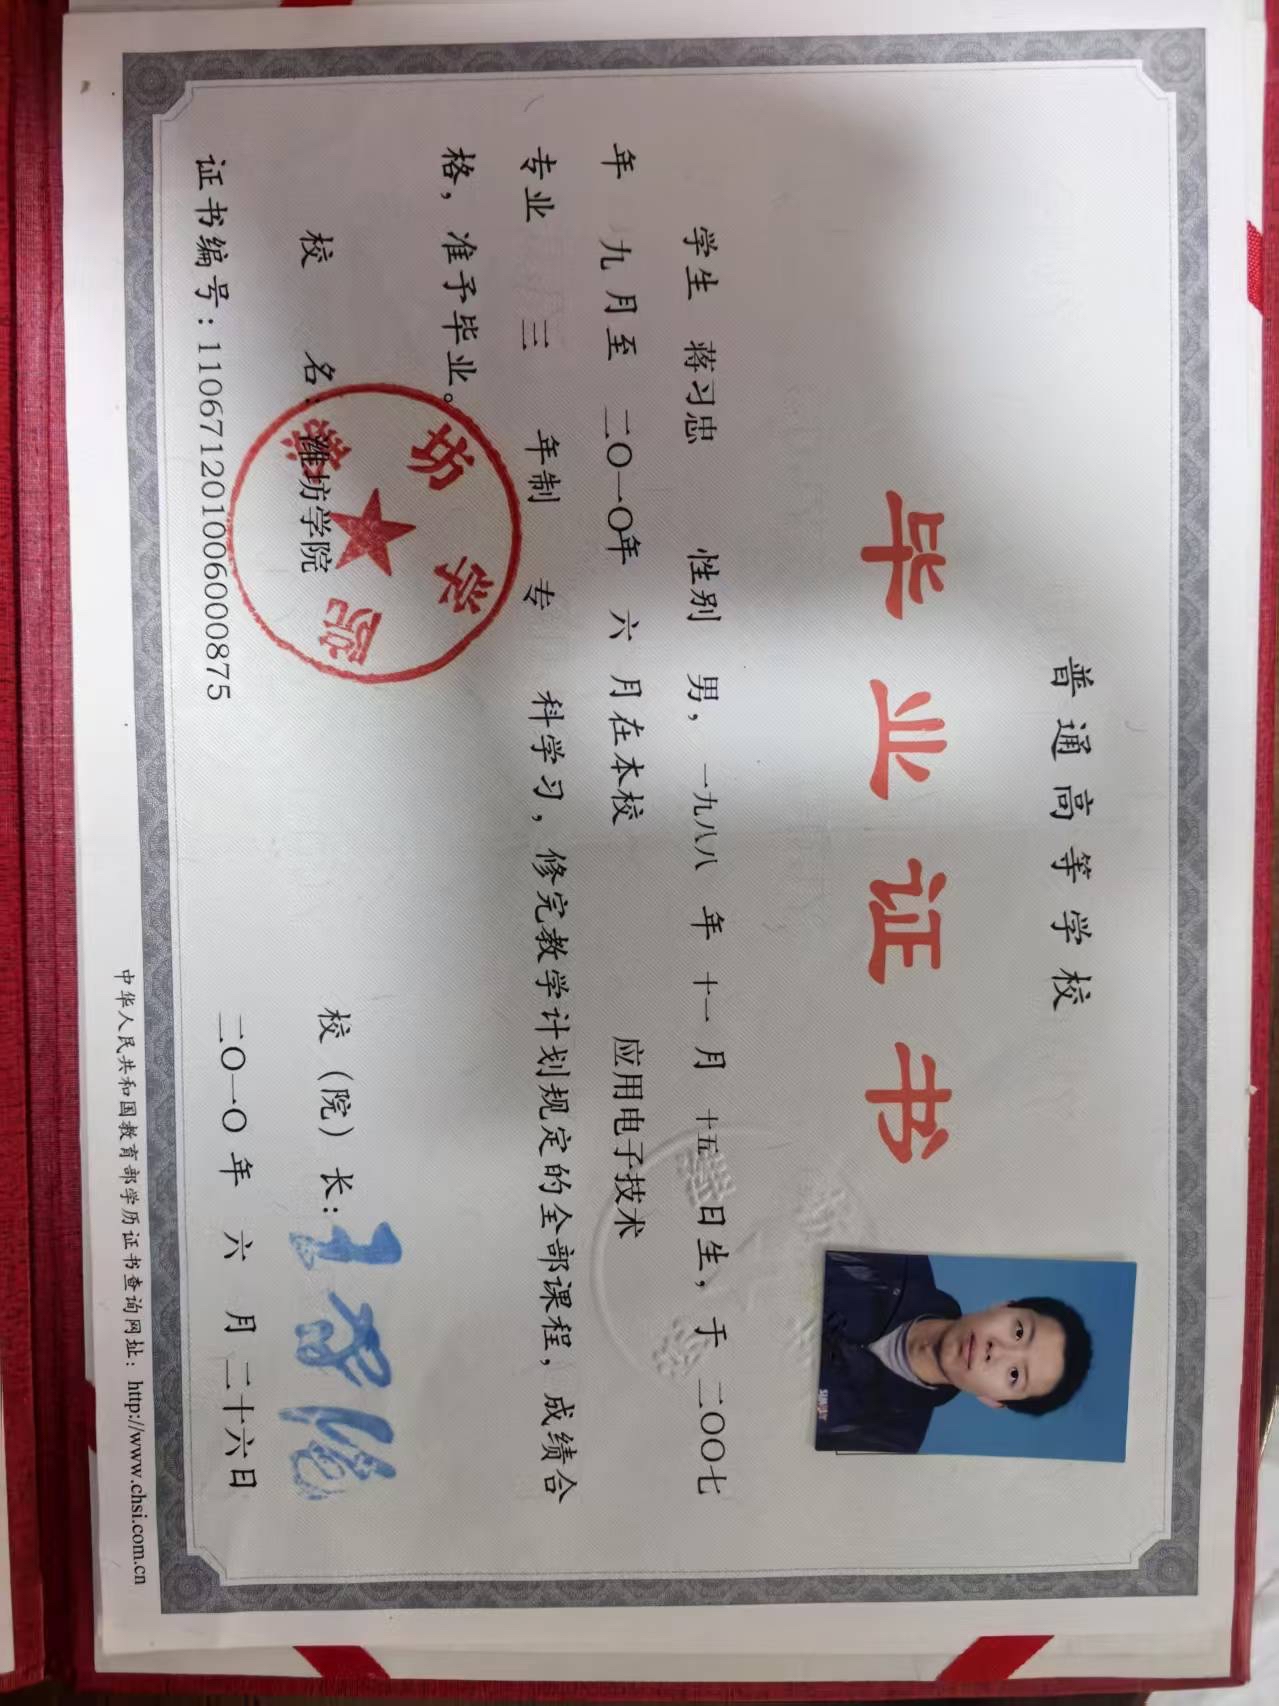 普通高等学校
毕业证书
学生 蒋习忠 性别 男，一九八八 年 十一 月 十五日生，于 二〇〇七
年 九月至 二〇一〇年 六 月在本校 应用电子技术
专业 三 年制 专 科学习，修完教学计划规定的全部课程，成绩合
格，准予毕业。
校 名：潍坊学院
潍坊学院
校（院）长：
证书编号：110671201006000875
二〇一〇年 六 月二十六日
中华人民共和国教育部学历证书查询网址：http://www.chsi.com.cn